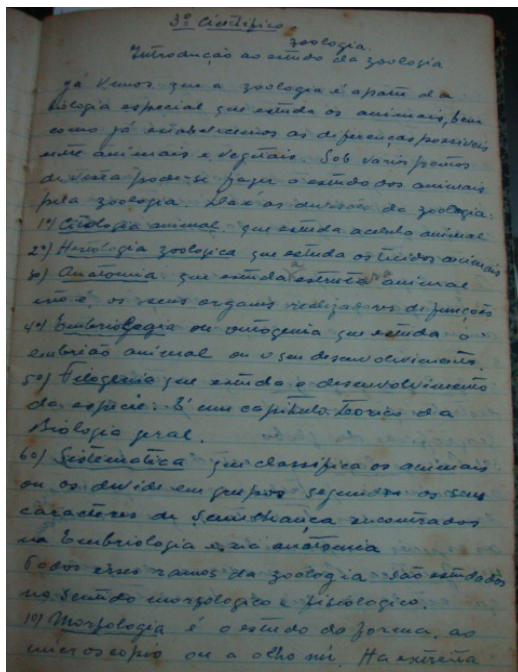 3º Cientifico
zoologia.
Introdução ao estudo da zoologia
Já vimos que a zoologia é a parte da
biologia especial que estuda os animais, bem
como já estabelecemos as diferenças possiveis
entre animais e vegetais. Sob varios pontos
de vista pode-se fazer o estudo dos animais
pela zoologia. as divisões da zoologia:
1º) Citologia animal que estuda a celula animal
2º) Histologia zoologica que estuda os tecidos animais
3º) Anatomia que estuda estrutura animal
isto é, os seus orgams realizadores de funções
4º) Embriologia ou ontogenia que estuda o
embrião animal ou o seu desenvolvimento.
5º) Filogenia que estuda o desenvolvimento
da espécie. É um capitulo teorico da
Biologia geral.
6º) Sistematica que classifica os animais
ou os divide em grupos segundo os seus
caracteres de semelhança encontrados
na Embriologia e na anatomia
Todos esses ramos da zoologia são estudados
no sentido morfologico e fisiologico.
1º) Morfologia é o estudo da forma, ao
microscopio ou a olho nú. Ha